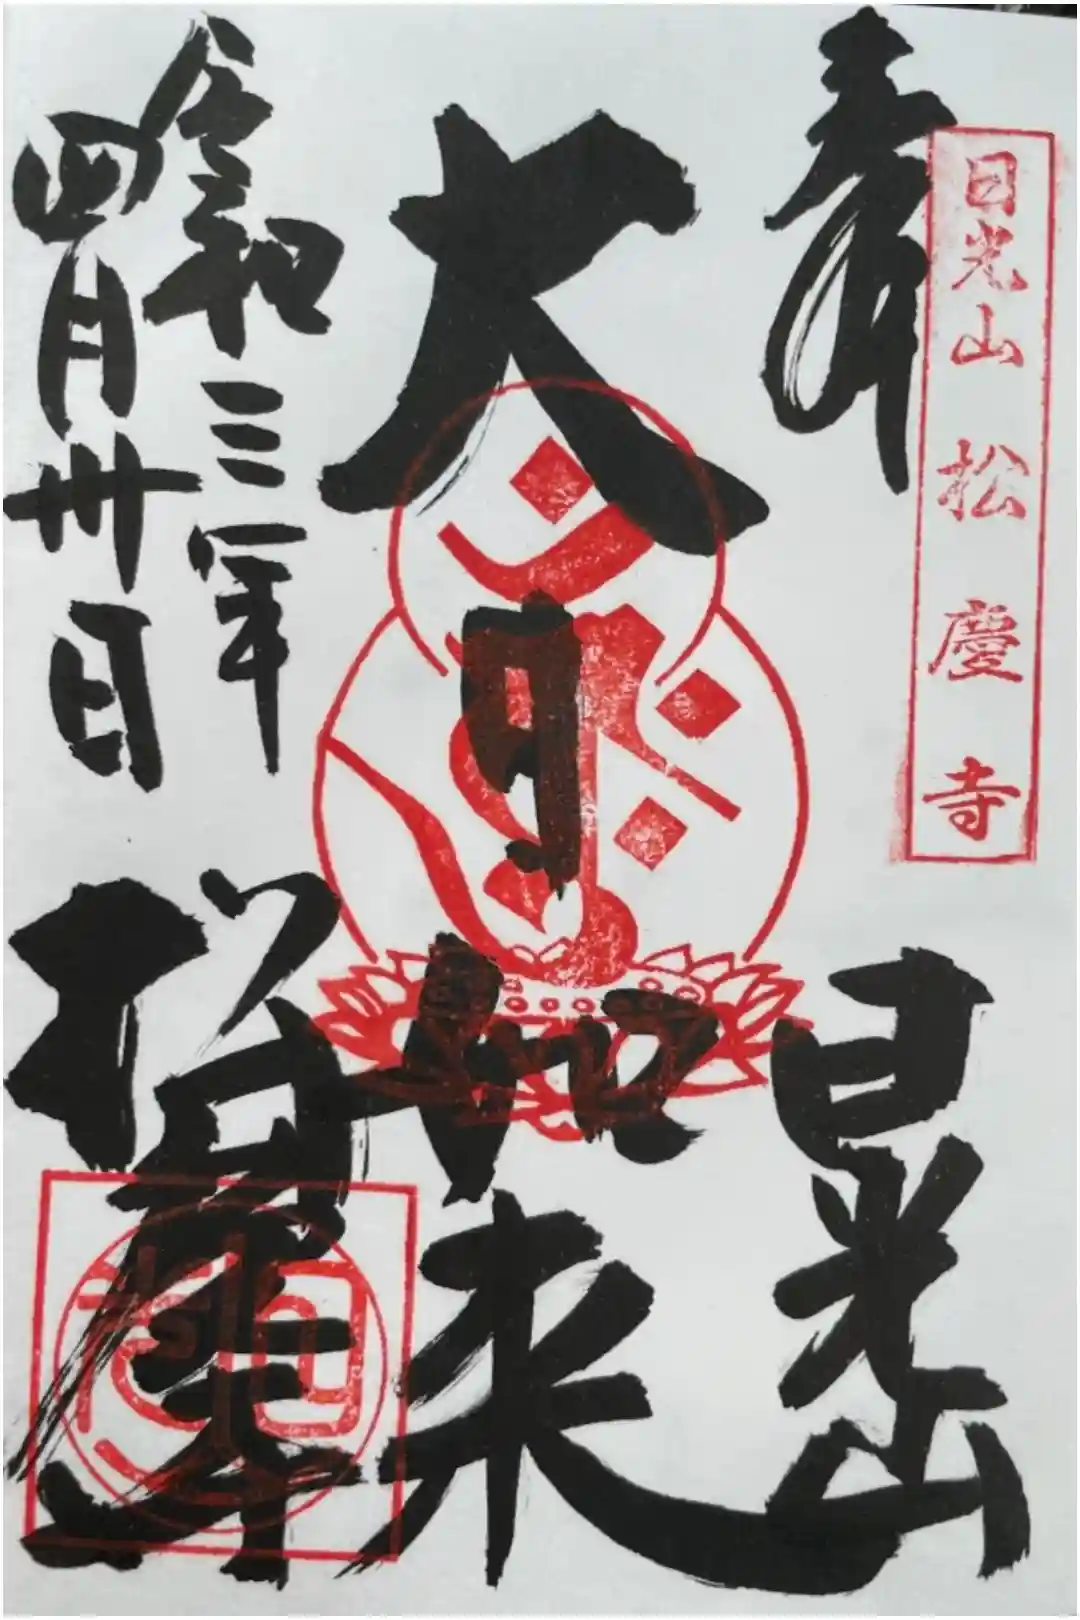 日光山 松慶寺
奉
日光山
大日如来
令和三年
四月卅日
松慶寺